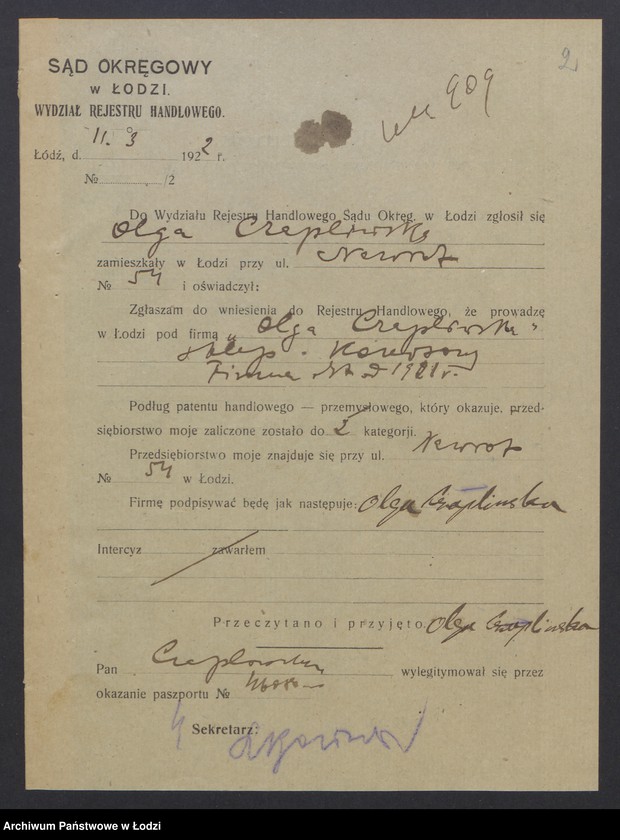 2
SĄD OKRĘGOWY
W ŁODZI.
WYDZIAŁ REJESTRU HANDLOWEGO.
909
Łódź, d. 11. 3 1922 r.
№ /2
Do Wydziału Rejestru Handlowego Sądu Okręg. w Łodzi zgłosił się
Olga
zamieszkały w Łodzi przy ul. Nawrot
№ 54 i oświadczył:
Zgłaszam do wniesienia do Rejestru Handlowego, że prowadzę
w Łodzi pod firmą „Olga
sklep
Firma istn. od 1921 r.
Podług patentu handlowego — przemysłowego, który okazuje, przed-
siębiorstwo moje zaliczone zostało do 2 kategorji.
Przedsiębiorstwo moje znajduje się przy ul. Nawrot
№ 54 w Łodzi.
Firmę podpisywać będę jak następuje: Olga Czaplinska
Intercyz zawarłem
Przeczytano i przyjęto. Olga Czaplinska
Pan wylegitymował się przez
okazanie paszportu №
Sekretarz:
Archiwum Państwowe w Łodzi